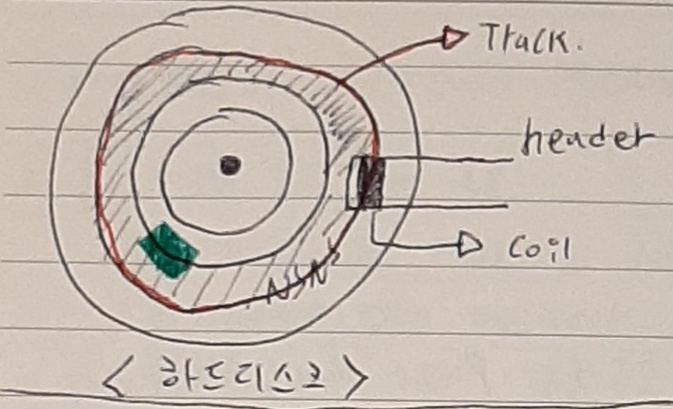 Track.
header
NSNS
coil
< 하드디스크 >